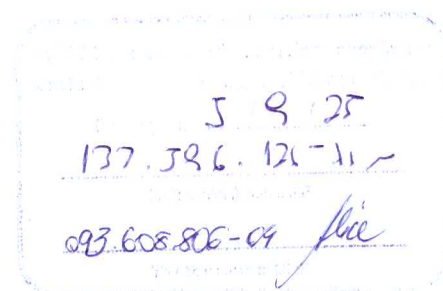 5 9 25
137.596.126-11
093.608.806-04